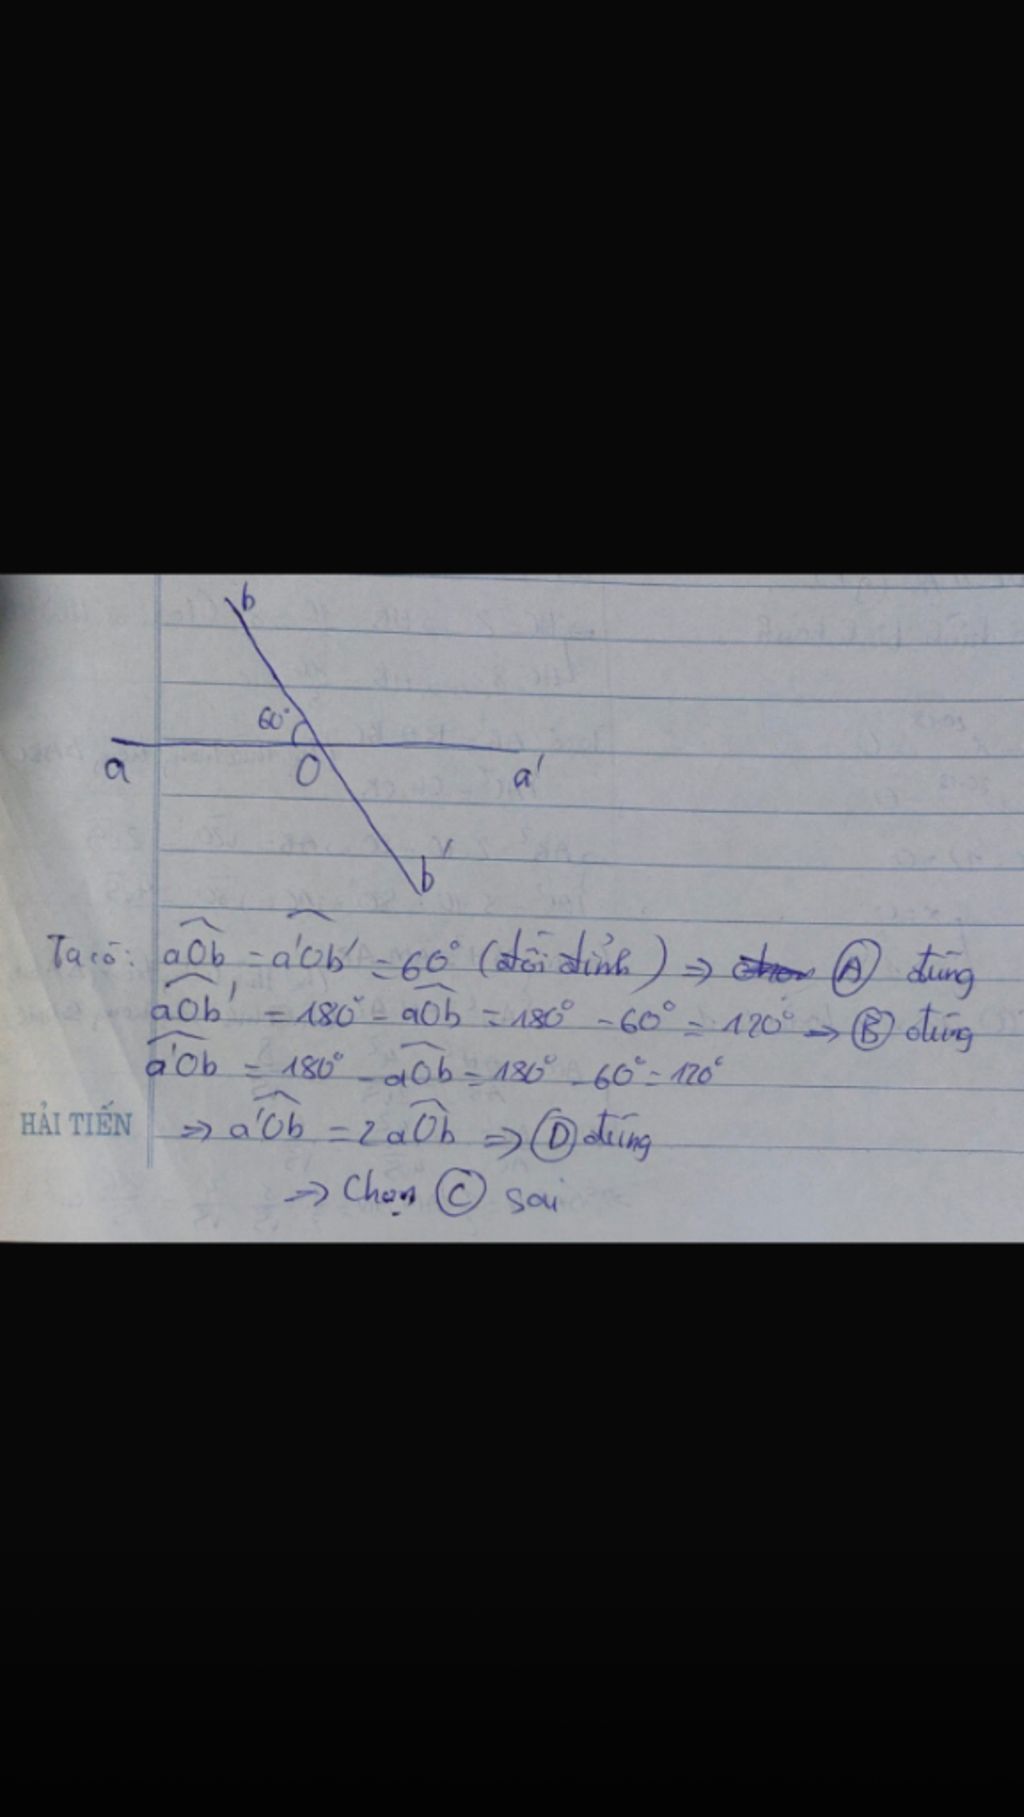 b
60°
a
O
a'
b'
Ta có: aOb = a'Ob' = 60° (đối đỉnh) => Ⓐ đúng
aOb' = 180° - aOb = 180° - 60° = 120° => Ⓑ đúng
a'Ob = 180° - aOb = 180° - 60° = 120°
HẢI TIẾN => a'Ob = 2aOb => Ⓓ đúng
=> Chọn Ⓒ sai